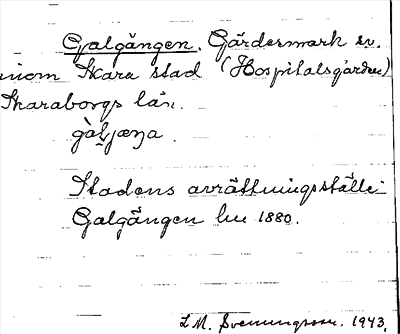 Galgängen. Gärdesmark sv.
inom Skara stad (Hospitalsgården)
Skaraborgs län.
Stadens avrättningsställe
Galgängen lw 1880.
L.M. Svenungsson. 1943.